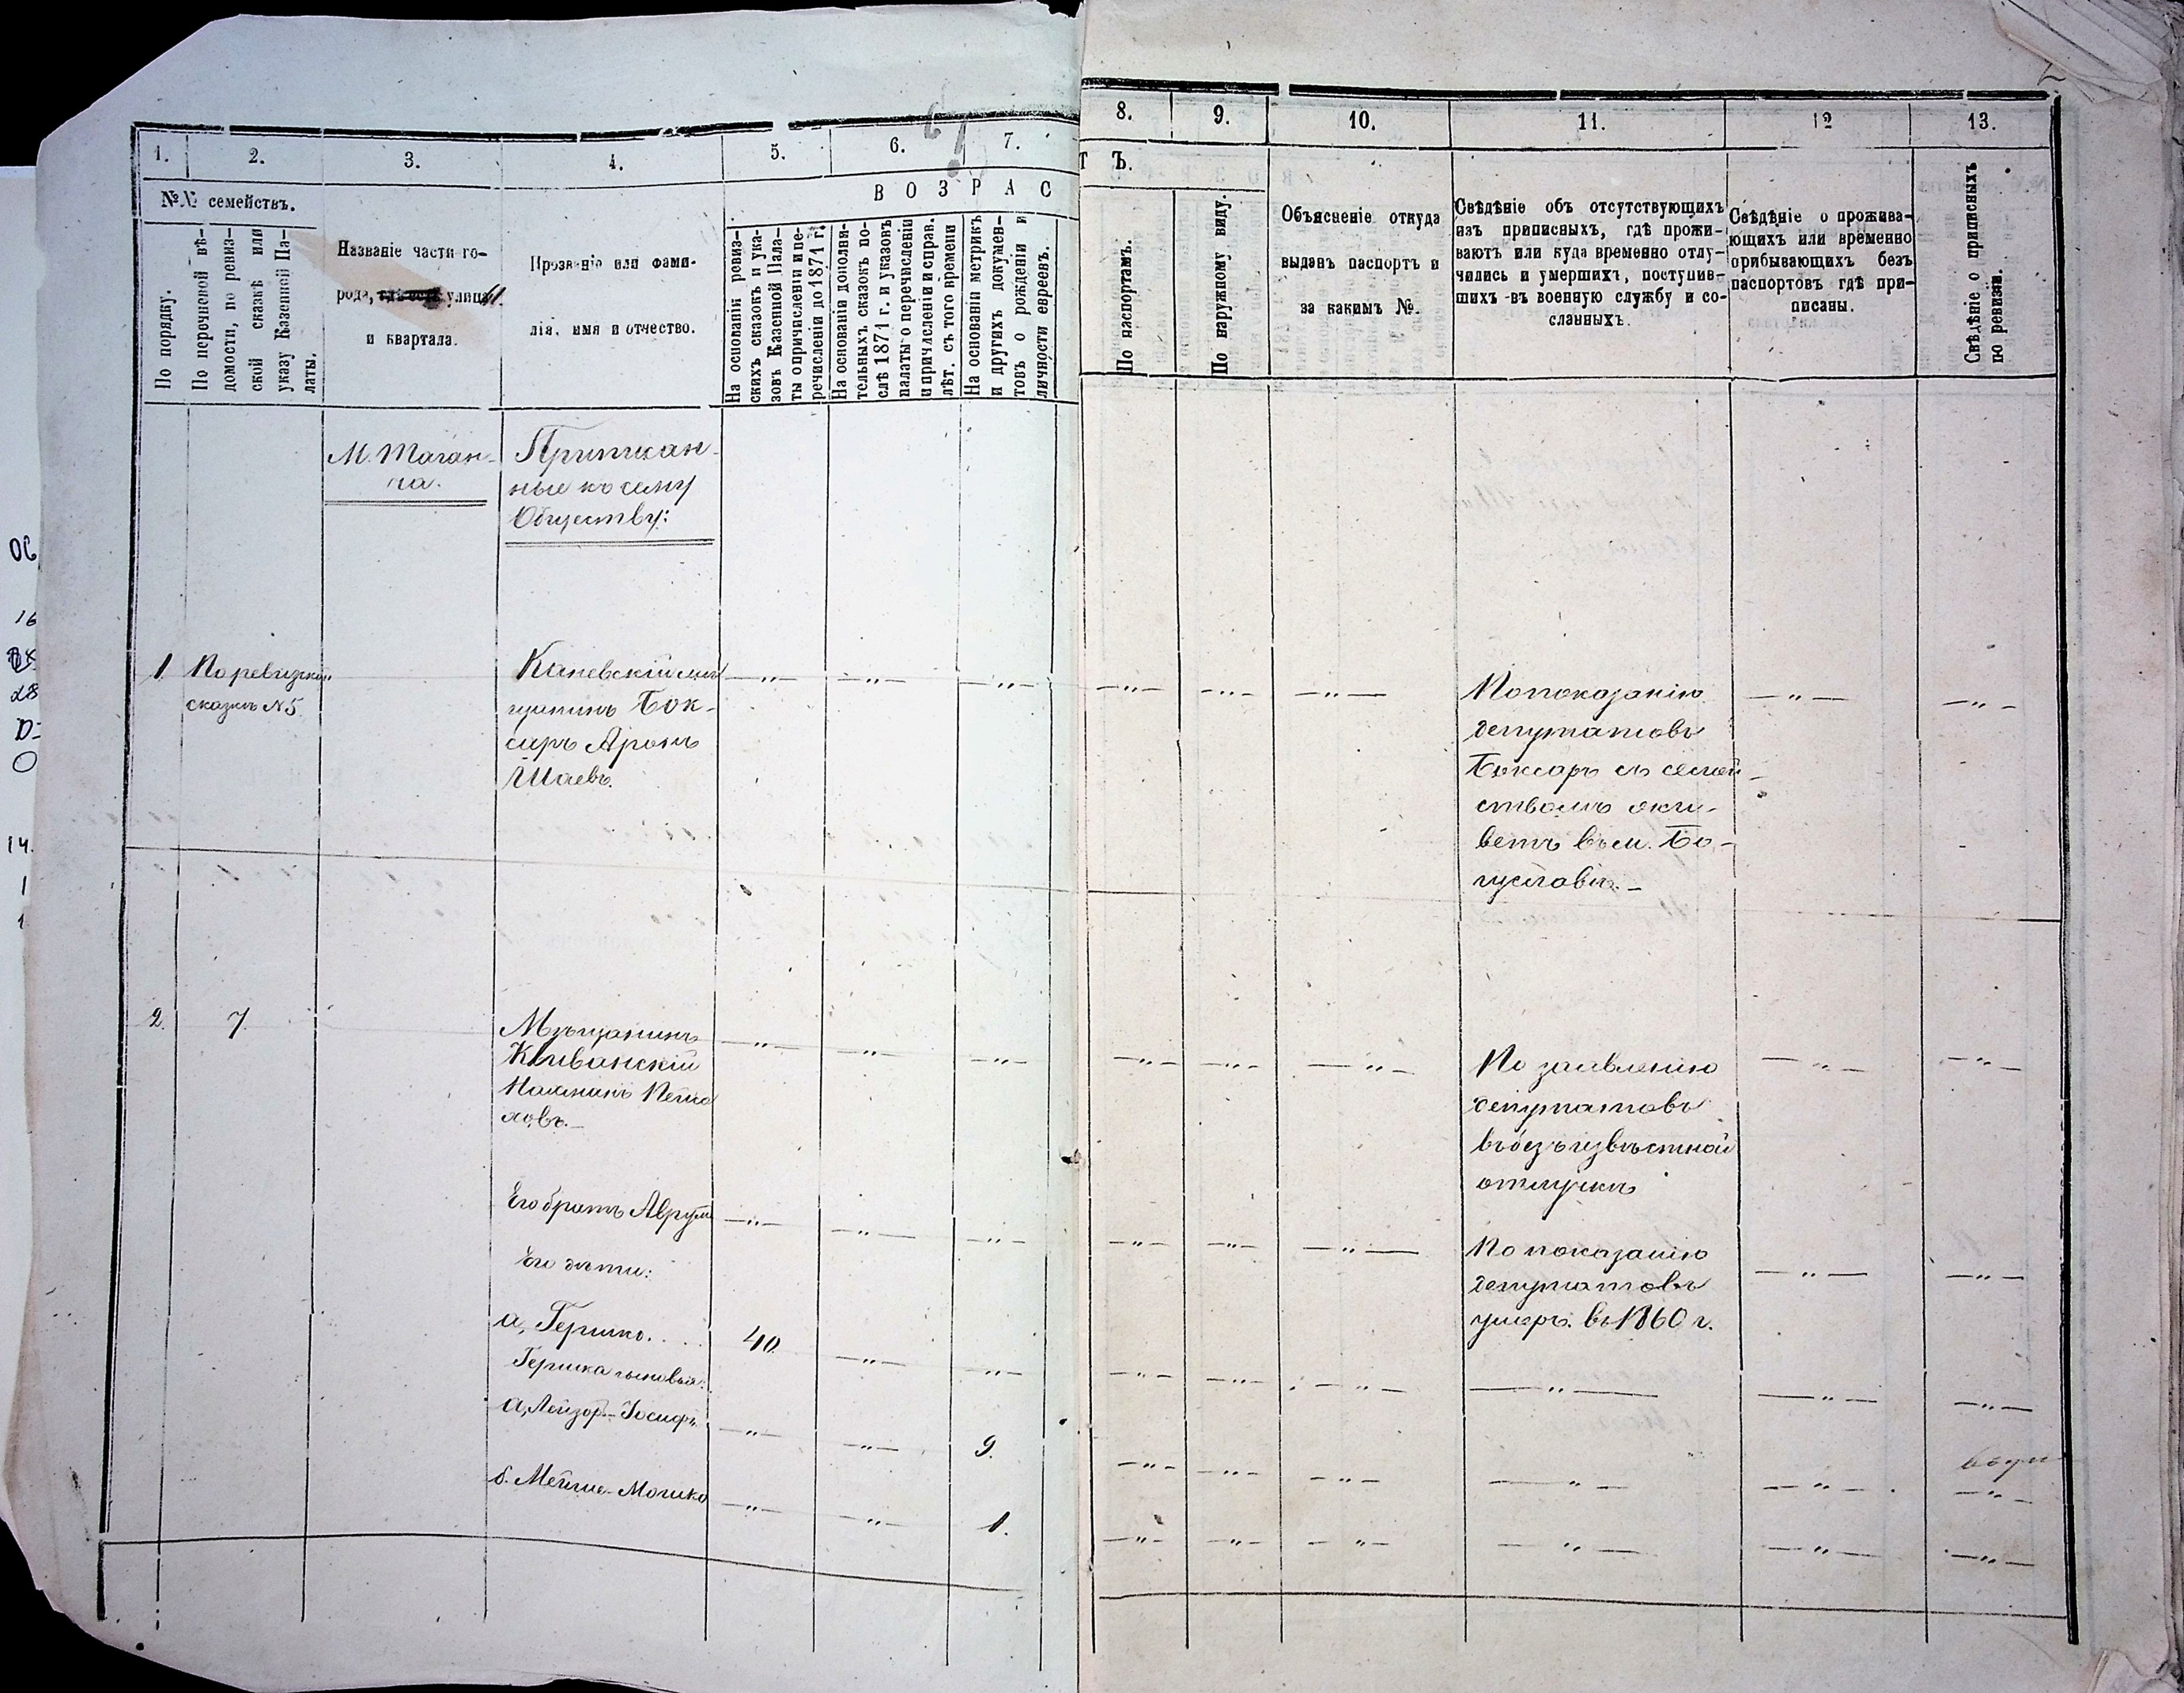 1.
2.
3.
4.
5.
6.
7.
8.
9.
10.
11.
12
13.
№№ семействъ.
По порядку.
По перечневой вѣ-
домости, по ревиз-
ской сказкѣ или
указу Казенной Па-
латы.
Названіе части го-
рода, улицы
и квартала.
Прозваніе или фами-
лія, имя и отчество.
ВОЗРАС
ТЪ.
На основаніи ревиз-
скихъ сказокъ и ука-
зовъ Казенной Пала-
ты о причисленіи и пе-
речисленіи до 1874 г.
На основаніи дополни-
тельныхъ сказокъ по-
слѣ 1874 г. и указовъ
палаты о перечисленіи
и причисленіи и справ.
лѣт. съ того времени
На основаніи метрикъ
и другихъ докумен-
товъ о рожденіи и
личности евреевъ.
По паспортамъ.
По наружному виду.
Объясненіе откуда
выданъ паспортъ и
за какимъ №.
Свѣдѣніе объ отсутствующихъ
изъ приписныхъ, гдѣ прожи-
ваютъ или куда временно отлу-
чились и умершихъ, поступив-
шихъ въ военную службу и со-
сланныхъ.
Свѣдѣніе о прожива-
ющихъ или временно
прибывающихъ безъ
паспортовъ гдѣ при-
писаны.
Свѣдѣніе о приписныхъ
по ревизіи.
М. Таган-
ча.
Приписан-
ные къ сему
Обществу:
1. По ревизкой
сказкѣ №5.
Каневскій мѣ
щанинъ Бок-
саръ Аронъ
Шаевъ.
По показанію
депутатовъ
Боксаръ съ семей-
ствомъ жи-
ветъ въ м. Бо-
гуславѣ.-
2.
7.
Мѣщанинъ
Кливанскій
Нахманъ Пейса
ховъ.-
По заявленію
депутатовъ
въ безъизвѣстной
отлучкѣ
Его братъ Аврумъ
По показанію
депутатовъ
умеръ въ 1860 г.
Его дѣти:
а, Гершко. . . .
40.
Гершка сыновья:
а, Лейзоръ-Іосифъ
9.
б. Мейше-Мошко
1.